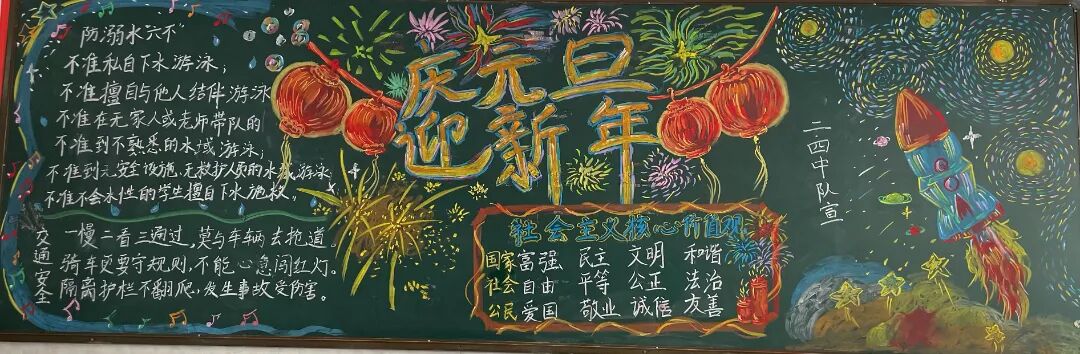 防溺水六不
不准私自下水游泳；
不准擅自与他人结伴游泳
不准在无家人或老师带队的
不准到不熟悉的水域游泳；
不准到无安全设施、无救护人员的水域游泳
不准不会水性的学生擅自下水施救。
交通安全
一慢二看三通过，莫与车辆去抢道。
骑车更要守规则，不能心急闯红灯。
隔离护栏不翻爬，发生事故受伤害。
庆元旦
迎新年
社会主义核心价值观
国家 富强 民主 文明 和谐
社会 自由 平等 公正 法治
公民 爱国 敬业 诚信 友善
二四中队宣